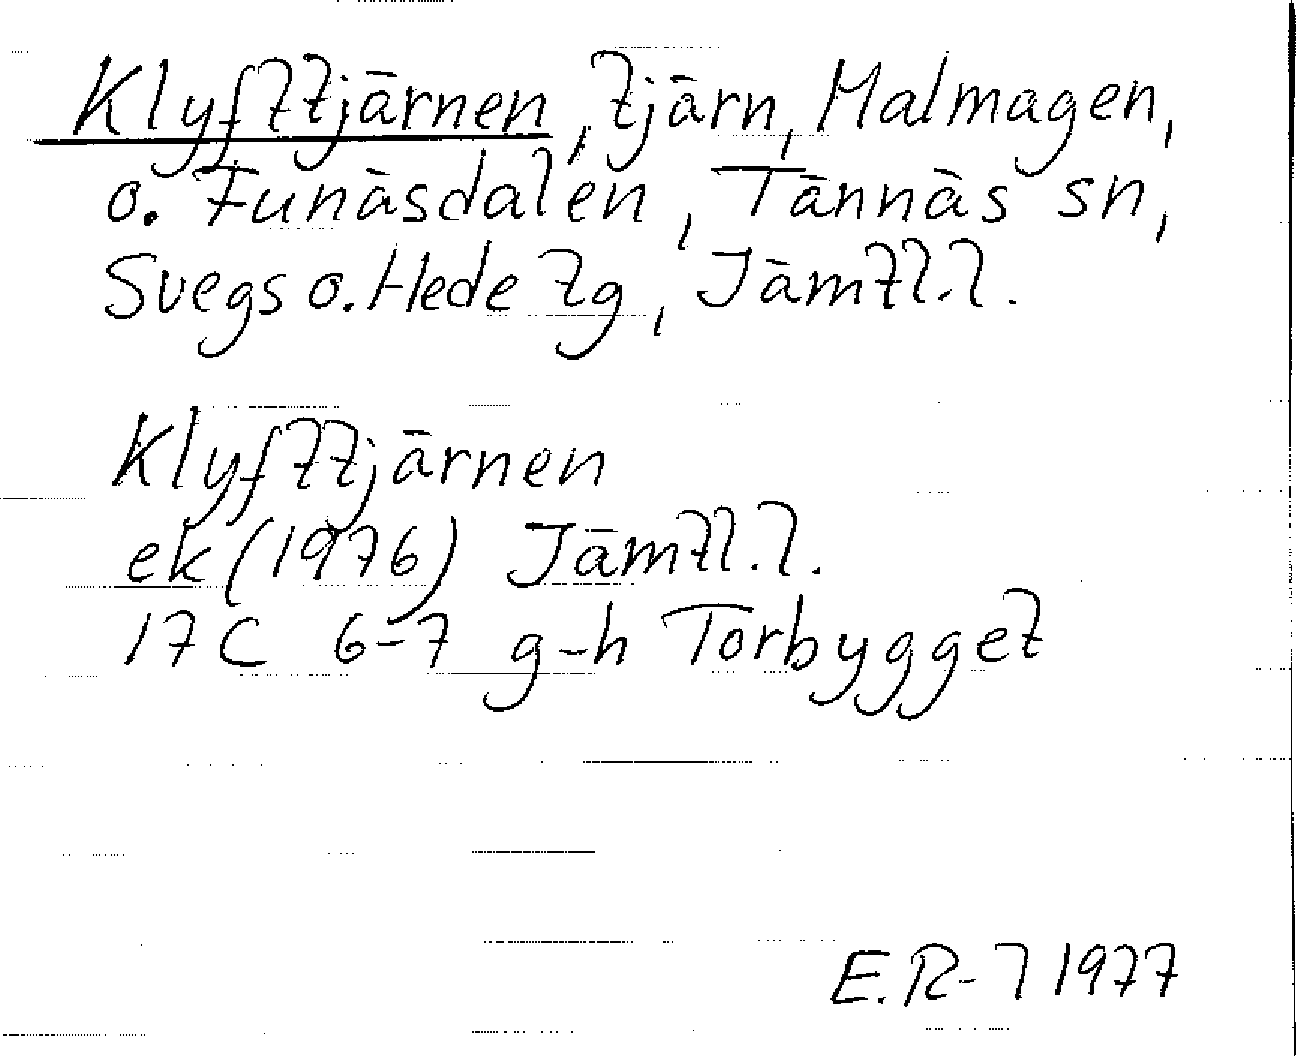 Klyfttjärnen, tjärn, Malmagen,
o. Funäsdalen, Tännäs sn,
Svegs o. Hede tg, Jämtl.l.
Klyfttjärnen
ek (1976) Jämtl.l.
17C 6-7 g-h Torbygget
E.R-l 1977